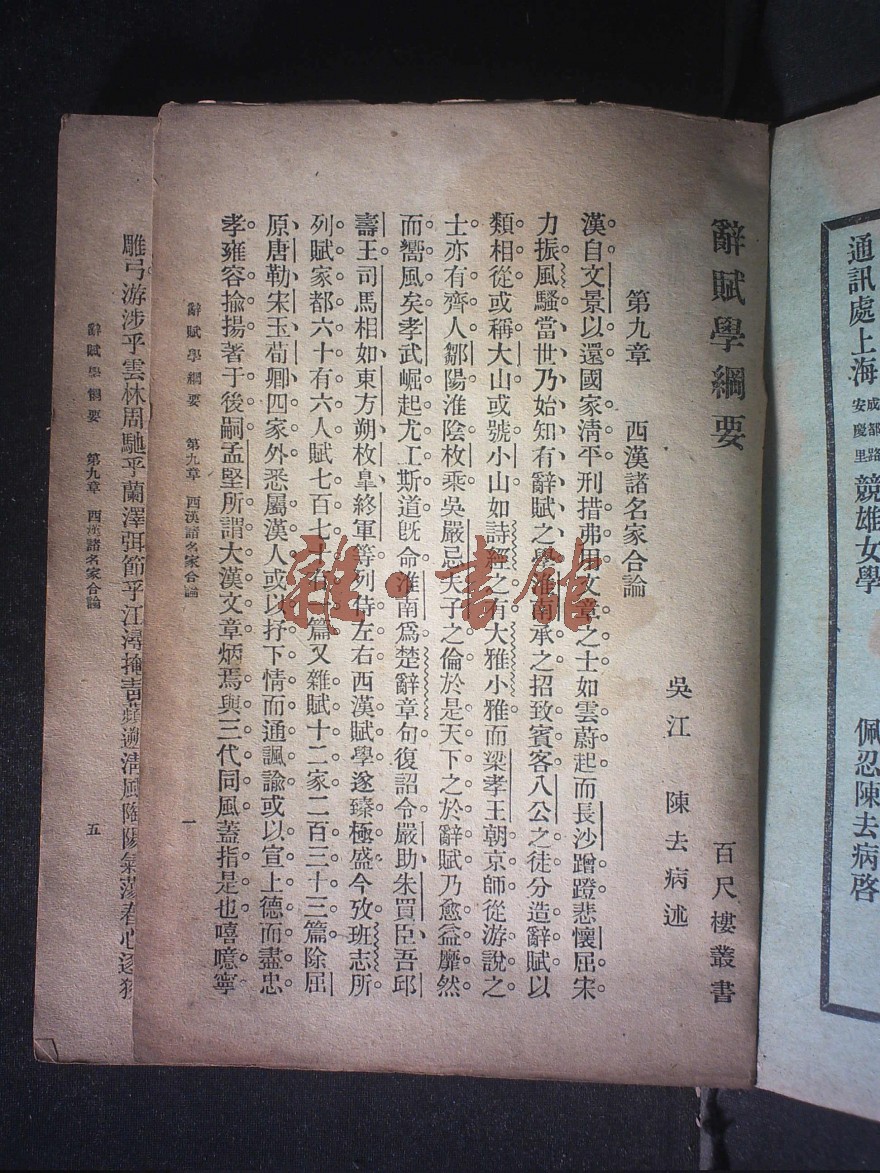 通訊處上海成都路安慶里競雄女學　佩忍陳去病啓
辭賦學綱要　百尺樓叢書
吳江　陳去病述
第九章　西漢諸名家合論
漢自文景以還。國家清平。刑措弗用。文章之士。如雲蔚起。而長沙蹭蹬。悲懷屈宋。
力振風騷。當世乃始知有辭賦之學。淮南承之。招致賓客。八公之徒。分造辭賦。以
類相從。或稱大山。或號小山。如詩經之有大雅小雅。而梁孝王朝京師。從游說之
士。亦有齊人鄒陽。淮陰枚乘。吳嚴忌夫子之倫。於是天下之於辭賦。乃愈益靡然
而嚮風矣。孝武崛起。尤工斯道。旣命淮南爲楚辭章句。復詔令嚴助、朱買臣、吾邱
壽王、司馬相如、東方朔、枚臯、終軍等。列侍左右。西漢賦學。遂臻極盛。今攷班志所
列賦家都六十有六人。賦七百七十有一篇。又雜賦十二家。二百三十三篇。除屈
原、唐勒、宋玉、荀卿四家外。悉屬漢人。或以抒下情而通諷諭。或以宣上德而盡忠
孝。雍容揄揚。著于後嗣。孟堅所謂大漢文章。炳焉與三代同風。蓋指是也。嘻噫。寧
辭賦學綱要　第九章　西漢諸名家合論　一
雕弓。游涉乎雲林。周馳乎蘭澤。弭節乎江潯。掩青蘋。遊清風。陶陽氣。蕩春心。逐狡
辭賦學綱要　第九章　西漢諸名家合論　五
雜·書館